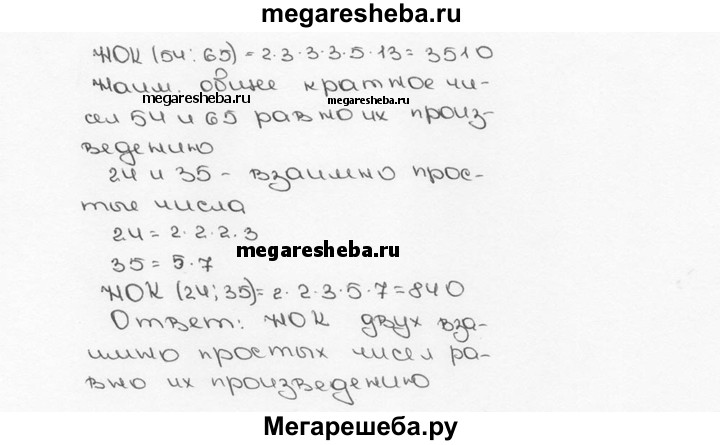 megaresheba.ru
НОК (54; 65) = 2·3·3·3·5·13 = 3510
Наим. общее кратное чи-
megaresheba.ru megaresheba.ru
сел 54 и 65 равно их произ-
ведению
24 и 35 - взаимно прос-
тые числа
24 = 2·2·2·3
megaresheba.ru
35 = 5·7
НОК (24; 35) = 2·2·3·5·7 = 840
Ответ: НОК двух вза-
имно простых чисел ра-
вно их произведению
Мегарешеба.ру